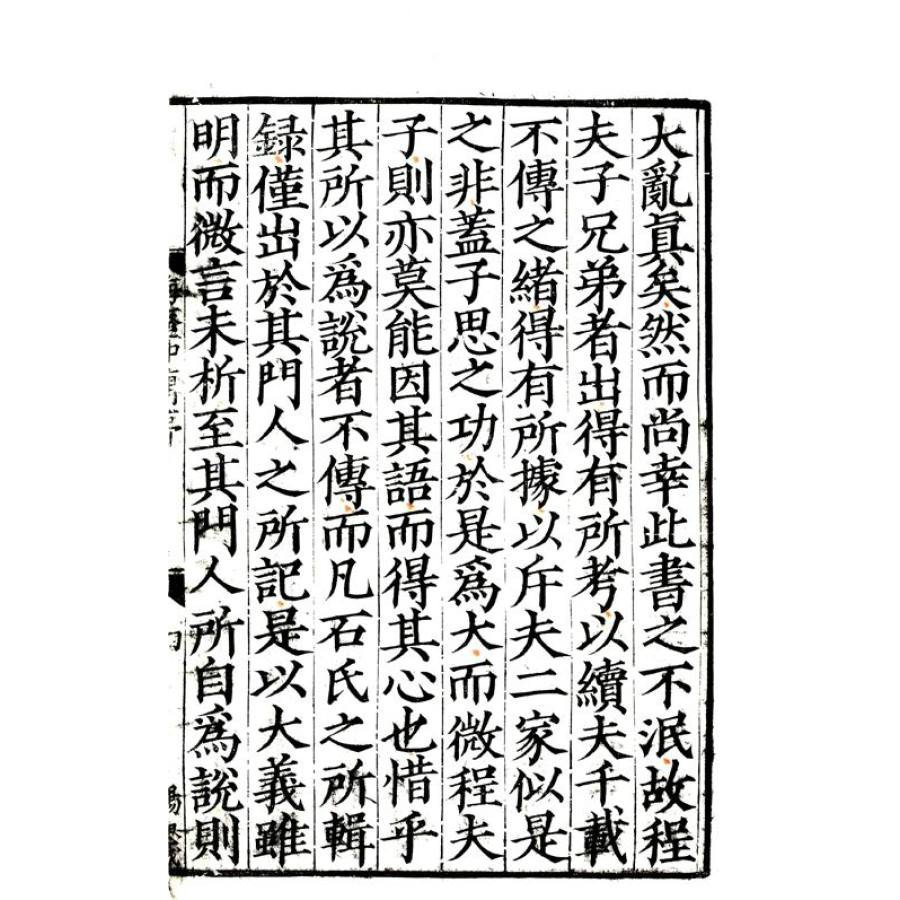 大亂眞矣然而尚幸此書之不泯故程
夫子兄弟者出得有所考以續夫千載
不傳之緒得有所據以斥夫二家似是
之非蓋子思之功於是爲大而微程夫
子則亦莫能因其語而得其心也惜乎
其所以爲說者不傳而凡石氏之所輯
録僅出於其門人之所記是以大義雖
明而微言未析至其門人所自爲說則